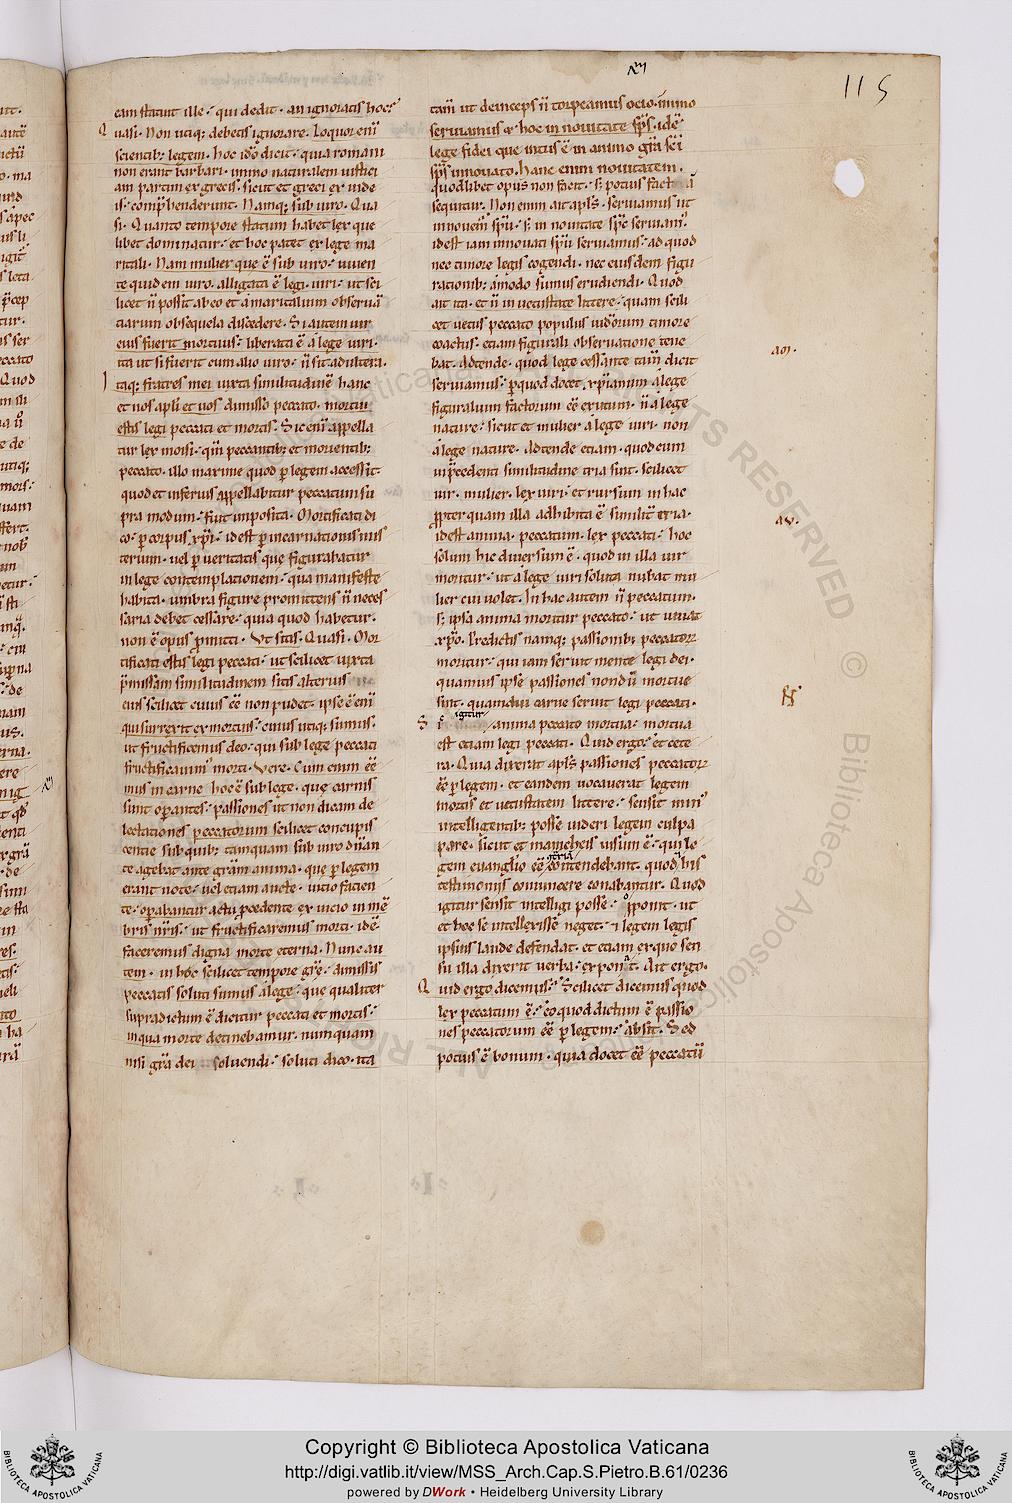 115
eam statuit ille. qui dedit. an ignoratis hoc.
Quasi. Non utiq; debetis ignorare. Loquor eni
scientib; legem. hoc ido dicit. quia romani
non erant barbari. immo naturalem iustici
am partim ex grecis. sicut et greci ex iude
is. comprhenderunt. Namq; sub uiro. Qua
si. Quanto tempore statum habet lex que
libet dominatur. et hoc patet ex lege ma
ritali. Nam mulier que ē sub uiro. uiuen
te quidem uiro. alligata ē legi uiri. ut sci
licet n possit ab eo et a maritalium obserua
tiarum obsequela discedere. Si autem uir
eius fuerit mortuus. liberata ē a lege uiri.
ita ut si fuerit cum alio uiro. n sit adultera.
Itaq; fratres mei iuxta similitudine hanc
et nos apli et uos dimisso peccato. mortui
estis legi peccati et mortis. Sic eni appella
tur lex moisi. qm peccantib; et mouentib;
peccato. illo maxime quod p legem accessit.
quod et inferius appellabitur peccatum su
pra modum. fuit imposita. Mortificati di
co. p corpus xpi. idest p incarnationis mis
terium. uel p ueritatis que figurabatur
in lege contemplationem. qua manifeste
habita. umbra figure promittens n neces
saria debet cessare. quia quod habetur.
non ē opus pmitti. Ut sitis. Quasi. Mor
tificati estis legi peccati. ut scilicet iuxta
pmissam similitudinem sitis alterius
eius scilicet cuius ēē non pudet. ipse ē eni
qui surrexit ex mortuis. cuius utiq; sumus.
ut fructificemus deo. qui sub lege peccati
fructificauim morti. Vere. Cum enim ēē
mus in carne hoc ē sub lege. que carnis
sunt operantes. passiones ut non dicam de
lectationes peccatorum scilicet concupis
centie sub quib; tamquam sub uiro diian
te agebat ante gram anima. que p legem
erant note. uel etiam aucte. uicio facien
te. operabantur actu pcedente ex uicio in me
bris nris. ut fructificaremus morti. ide
faceremus digna morte eterna. Nunc au
tem. in hoc scilicet tempore gre. dimissis
peccatis soluti sumus a lege. que qualiter
supradictum ē dicitur peccati et mortis.
in qua morte detinebamur. numquam
nisi gra dei soluendi. soluti dico. ita
tam ut deinceps n torpeamus ocio. immo
seruiamus et hoc in nouitate sps. ide
lege fidei que intus ē in animo gra sci
sps innouato. Hanc enim nouitatem.
quodlibet opus non facit. s; potius fact a
sequitur. Non enim ait apls. seruiamus ut
innouem spu. s; in nouitate spc seruiam
idest iam innouati spu seruiamus. ad quod
nec timore legis cogendi. nec eiusdem figu
rationib; amodo sumus erudiendi. Quod
ait ita. et n in uetustate littere. quam scili
cet uetus peccato populus iudorum timore
coactus. etiam figurali obseruatione tene
bat. Adtende. quod lege cessante tam dicit
seruiamus. p quod docet xpianum a lege
figuralium factorum ēē exutum. n a lege
nature. sicut et mulier a lege uiri. non
a lege nature. Adtende etiam. quod cum
in pcedenti similitudine tria sint. scilicet
uir. mulier. lex uiri. et rursum in hac
ppter quam illa adhibita ē similit tria.
idest anima. peccatum. lex peccati. hoc
solum hic diuersum ē. quod in illa uir
moritur. ut a lege uiri soluta nubat mu
lier cui uolet. In hac autem n peccatum.
s; ipsa anima moritur peccato. ut uiuat
xpo. Predictis namq; passionib; peccator
moritur. qui iam seruit mente legi dei.
quamuis ipse passiones nondu mortue
sint. quamdiu carne seruit legi peccati.
Si igitur anima peccato mortua. mortua
est etiam legi peccati. Quid ergo. et cete
ra. Quia dixerat apls passiones peccator
ēē p legem. et eandem uocauerat legem
mortis et uetustatem littere. sensit min
intelligentib; posse uideri legem culpa
pare. sicut et manicheis uisum ē. qui le
gem euanglio ēē contraria contendebant. quod his
testimoniis conuincere conabantur. Quod
igitur sensit intelligi posse. opponit. ut
et hoc se intellexisse neget. et legem legis
ipsius laude defendat. et etiam ex quo sen
su illa dixerit uerba. exponat. Ait ergo.
Quid ergo dicemus. Scilicet dicemus quod
lex peccatum ē. eo quod dictum ē passio
nes peccatorum ēē p legem. absit. Sed
potius ē bonum. quia docet ēē peccatu
Copyright © Biblioteca Apostolica Vaticana
http://digi.vatlib.it/view/MSS_Arch.Cap.S.Pietro.B.61/0236
powered by DWork • Heidelberg University Library